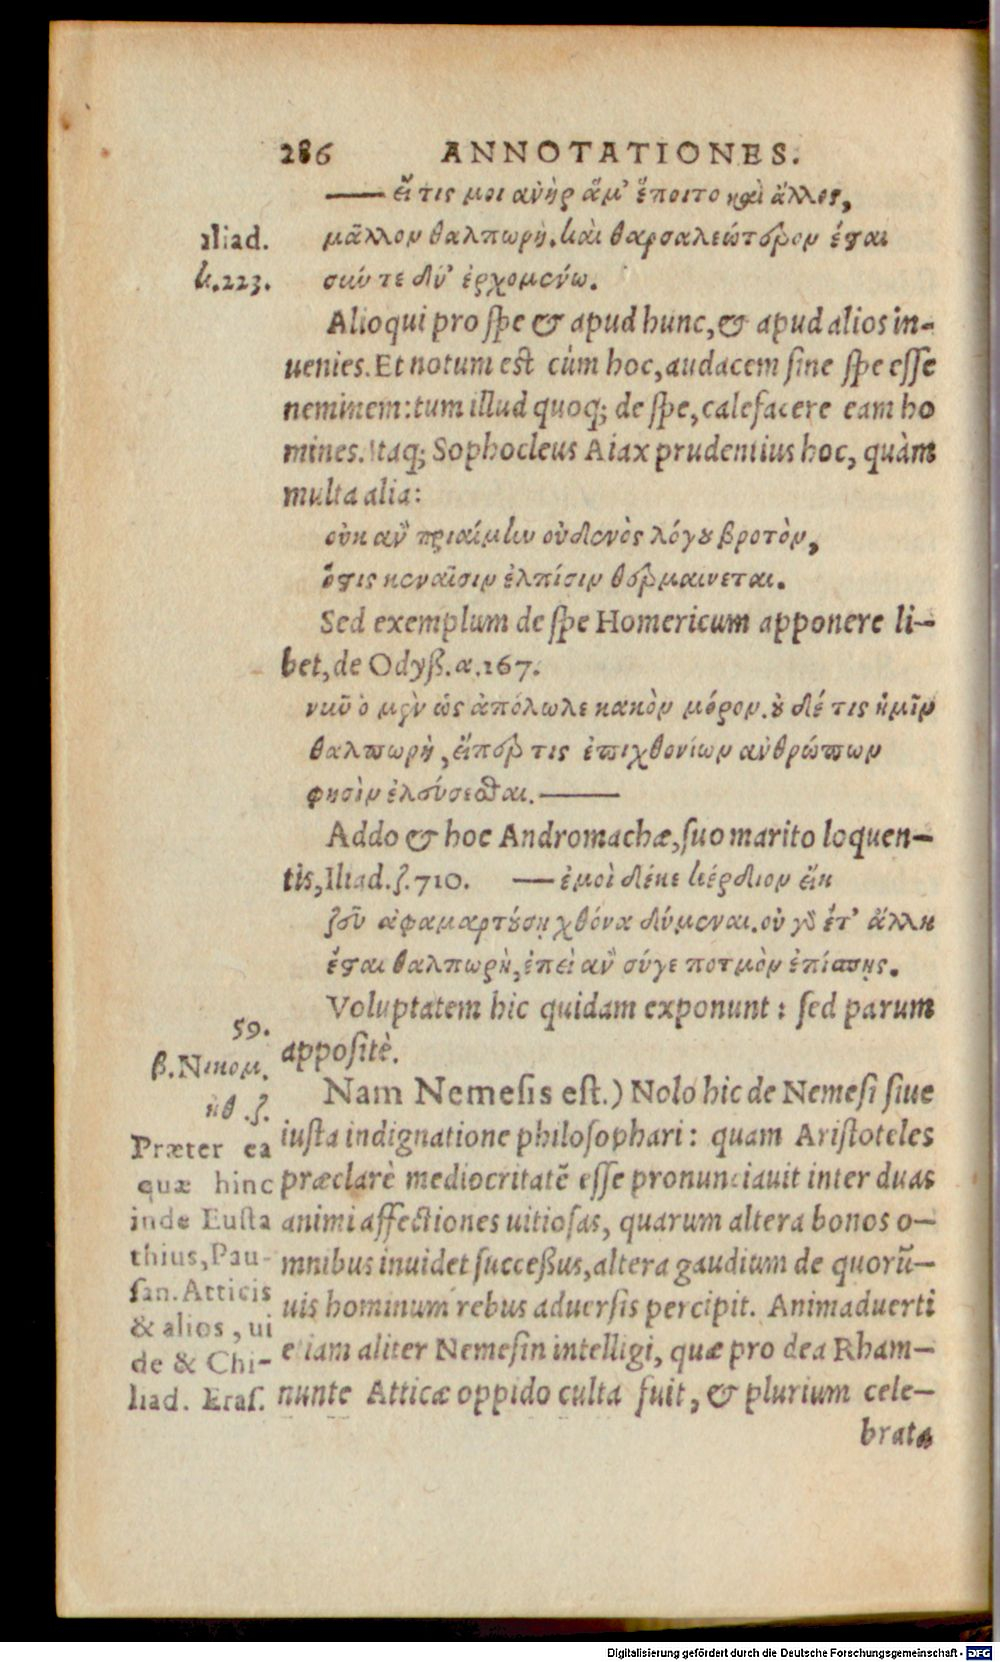 286 ANNOTATIONES.
— εἴ τις μοι ἀνὴρ ἅμ' ἕποιτο καὶ ἄλλος,
Iliad.
κ.223.
μᾶλλον θαλπωρὴ. καὶ θαρσαλεώτερον ἔσται
σύν τε δύ' ἐρχομένω.
Alioqui pro spe & apud hunc, & apud alios in-
uenies. Et notum est cùm hoc, audacem sine spe esse
neminem: tum illud quoq; de spe, calefacere eam ho
mines. Itaq; Sophocleus Aiax prudentius hoc, quàm
multa alia:
οὐκ ἂν πριαίμην οὐδενὸς λόγου βροτὸν,
ὅστις κεναῖσιν ἐλπίσιν θερμαίνεται.
Sed exemplum de spe Homericum apponere li-
bet, de Odyß. α.167.
νῦν ὁ μὲν ὣς ἀπόλωλε κακὸν μόρον. οὐδέ τις ἡμῖν
θαλπωρὴ, εἴπερ τις ἐπιχθονίων ἀνθρώπων
φησὶν ἐλεύσεσθαι. —
Addo & hoc Andromachæ, suo marito loquen-
tis, Iliad. ζ. 710. — ἐμοὶ δέ κε κέρδιον εἴη
σεῦ ἀφαμαρτούσῃ χθόνα δύμεναι. οὐ γὰρ ἔτ' ἄλλη
ἔσται θαλπωρὴ, ἐπεὶ ἂν σύγε ποτμὸν ἐπίσπῃς.
Voluptatem hic quidam exponunt: sed parum
appositè.
59.
β. Νικομ.
ηθ. ζ.
Præter ea
quæ hinc
inde Eusta
thius, Pau-
san. Atticis
& alios, ui
de & Chi-
liad. Eras.
Nam Nemesis est.) Nolo hic de Nemesi siue
iusta indignatione philosophari: quam Aristoteles
præclarè mediocritatē esse pronunciauit inter duas
animi affectiones uitiosas, quarum altera bonos o-
mnibus inuidet succeßus, altera gaudium de quorū-
uis hominum rebus aduersis percipit. Animaduerti
etiam aliter Nemesin intelligi, quæ pro dea Rham-
nunte Atticæ oppido culta fuit, & plurium cele-
brata
Digitalisierung gefördert durch die Deutsche Forschungsgemeinschaft - DFG